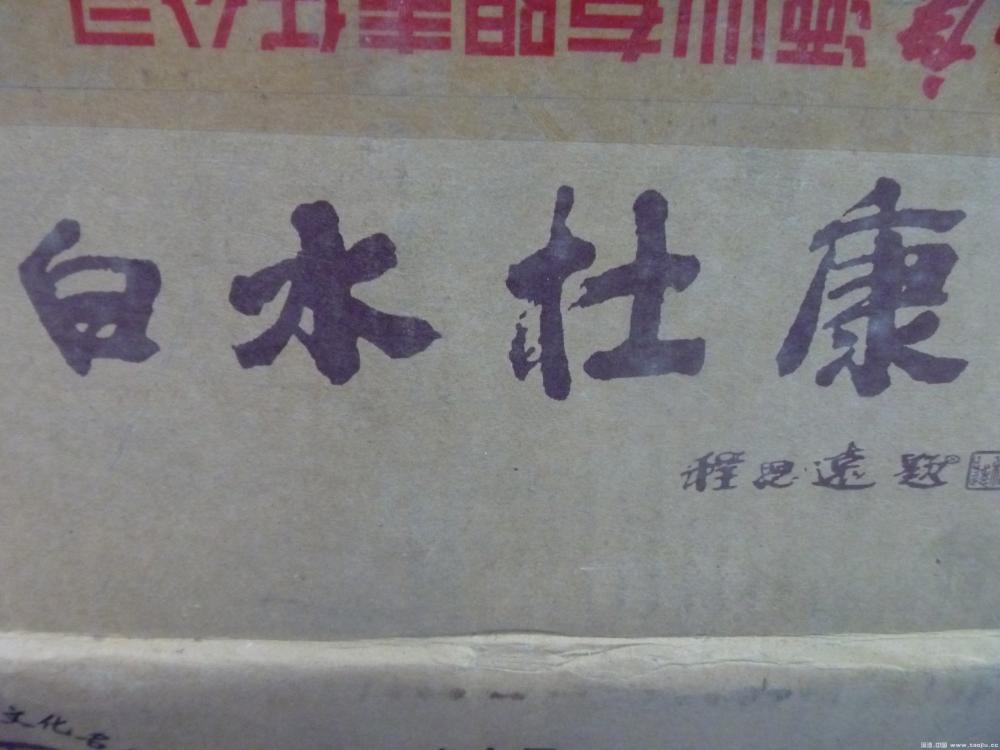 康酒业有限责任公司
白水杜康
程思远题
文化名
www.taojiu.cc